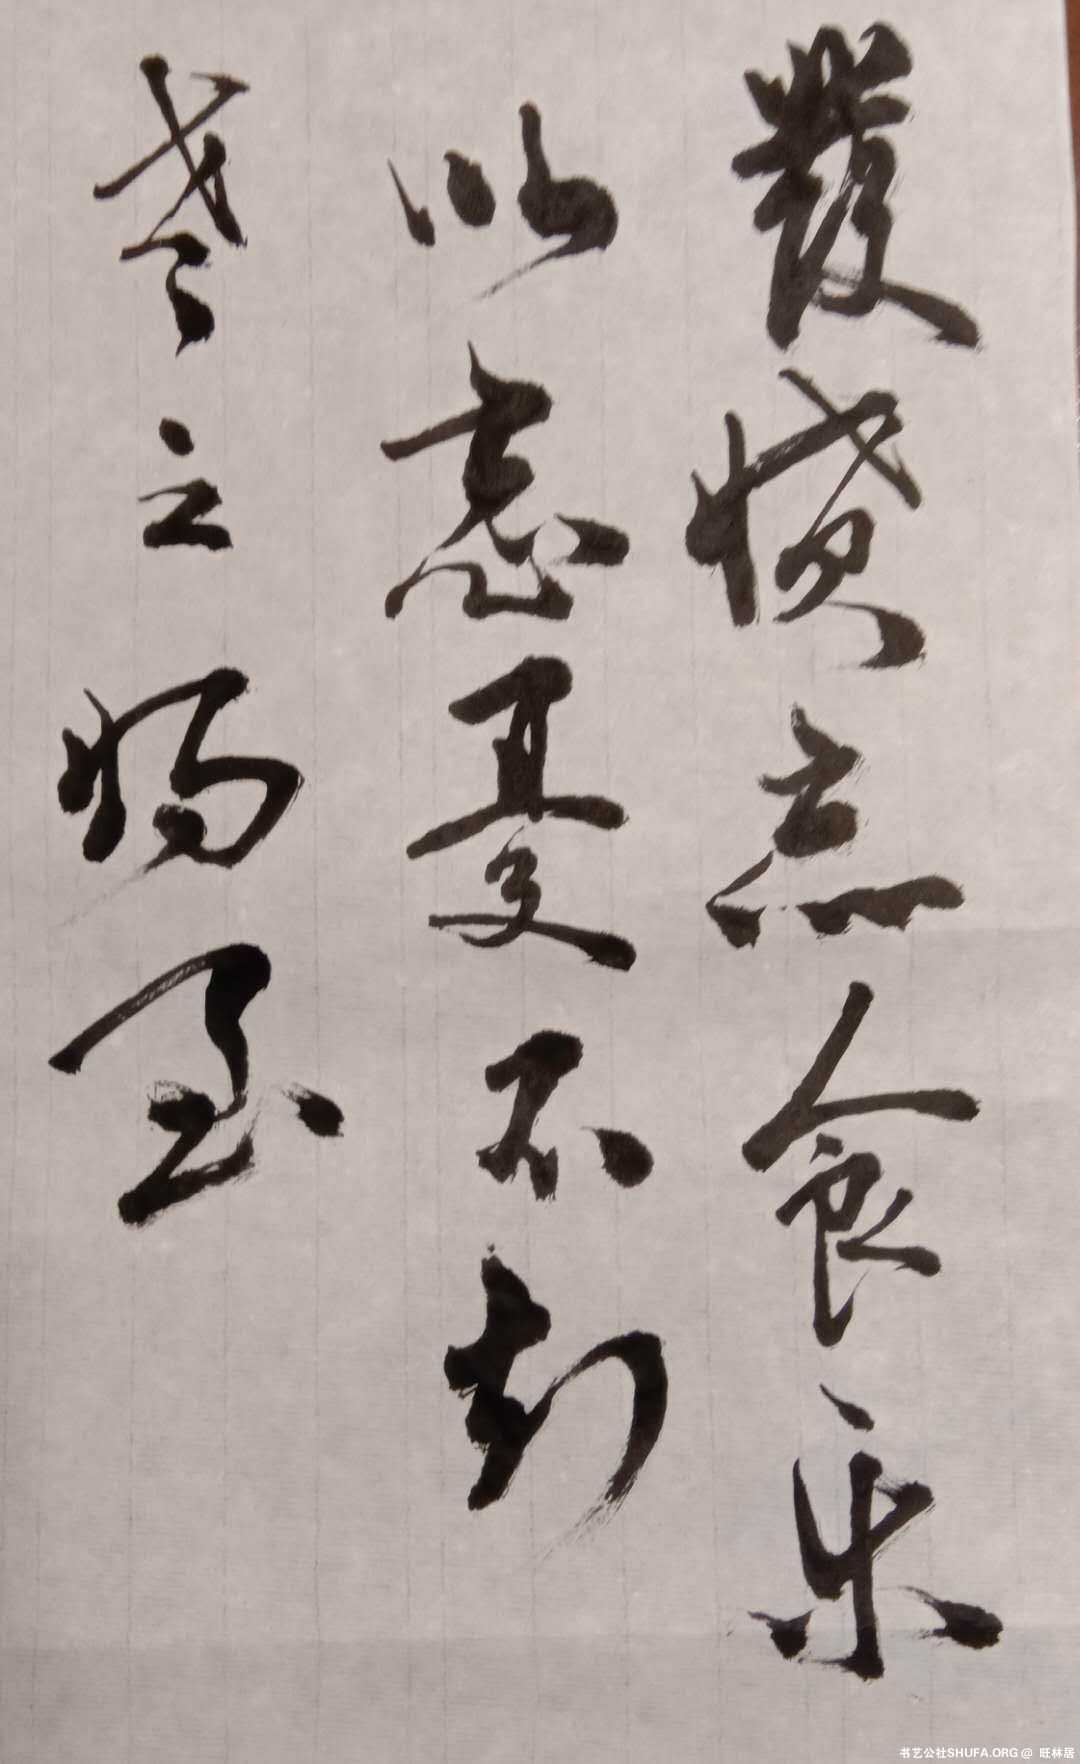 發憤忘食乐
以忘憂不知
老之將至
书艺公社SHUFA.ORG @ 旺林居